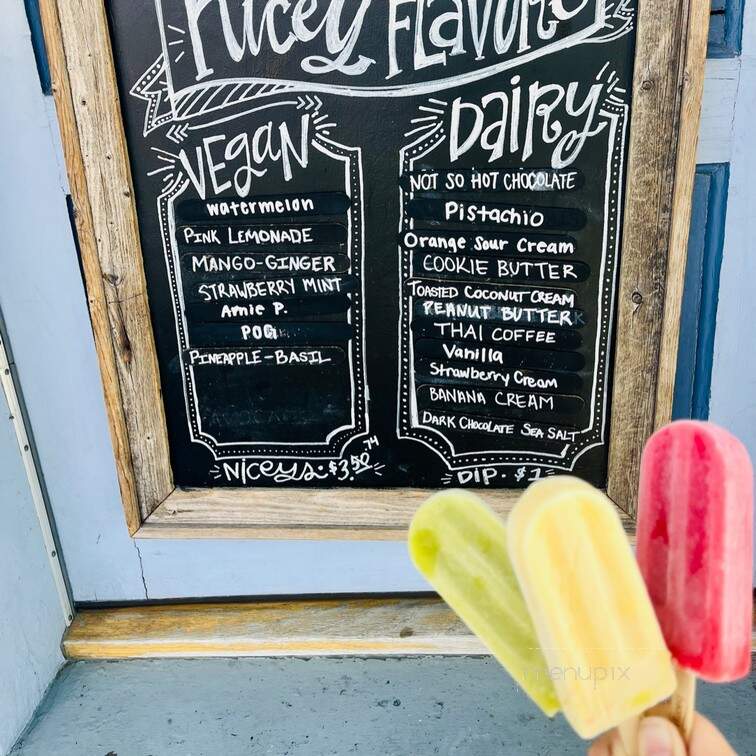 Nicey Flavors
Vegan
watermelon
PINK LEMONADE
MANGO-GINGER
STRAWBERRY MINT
Arnie P.
POG
PINEAPPLE-BASIL
Dairy
NOT SO HOT CHOCOLATE
Pistachio
Orange Sour Cream
COOKIE BUTTER
TOASTED COCONUT CREAM
PEANUT BUTTER
THAI COFFEE
Vanilla
Strawberry Cream
BANANA CREAM
DARK CHOCOLATE SEA SALT
NICEYS · $3.50
DIP · $1
menupix